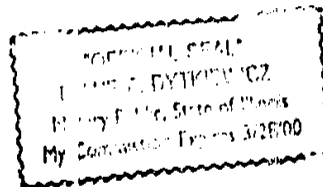 "OFFICIAL SEAL"
Notary Public, State of Illinois
My Commission Expires 3/28/00